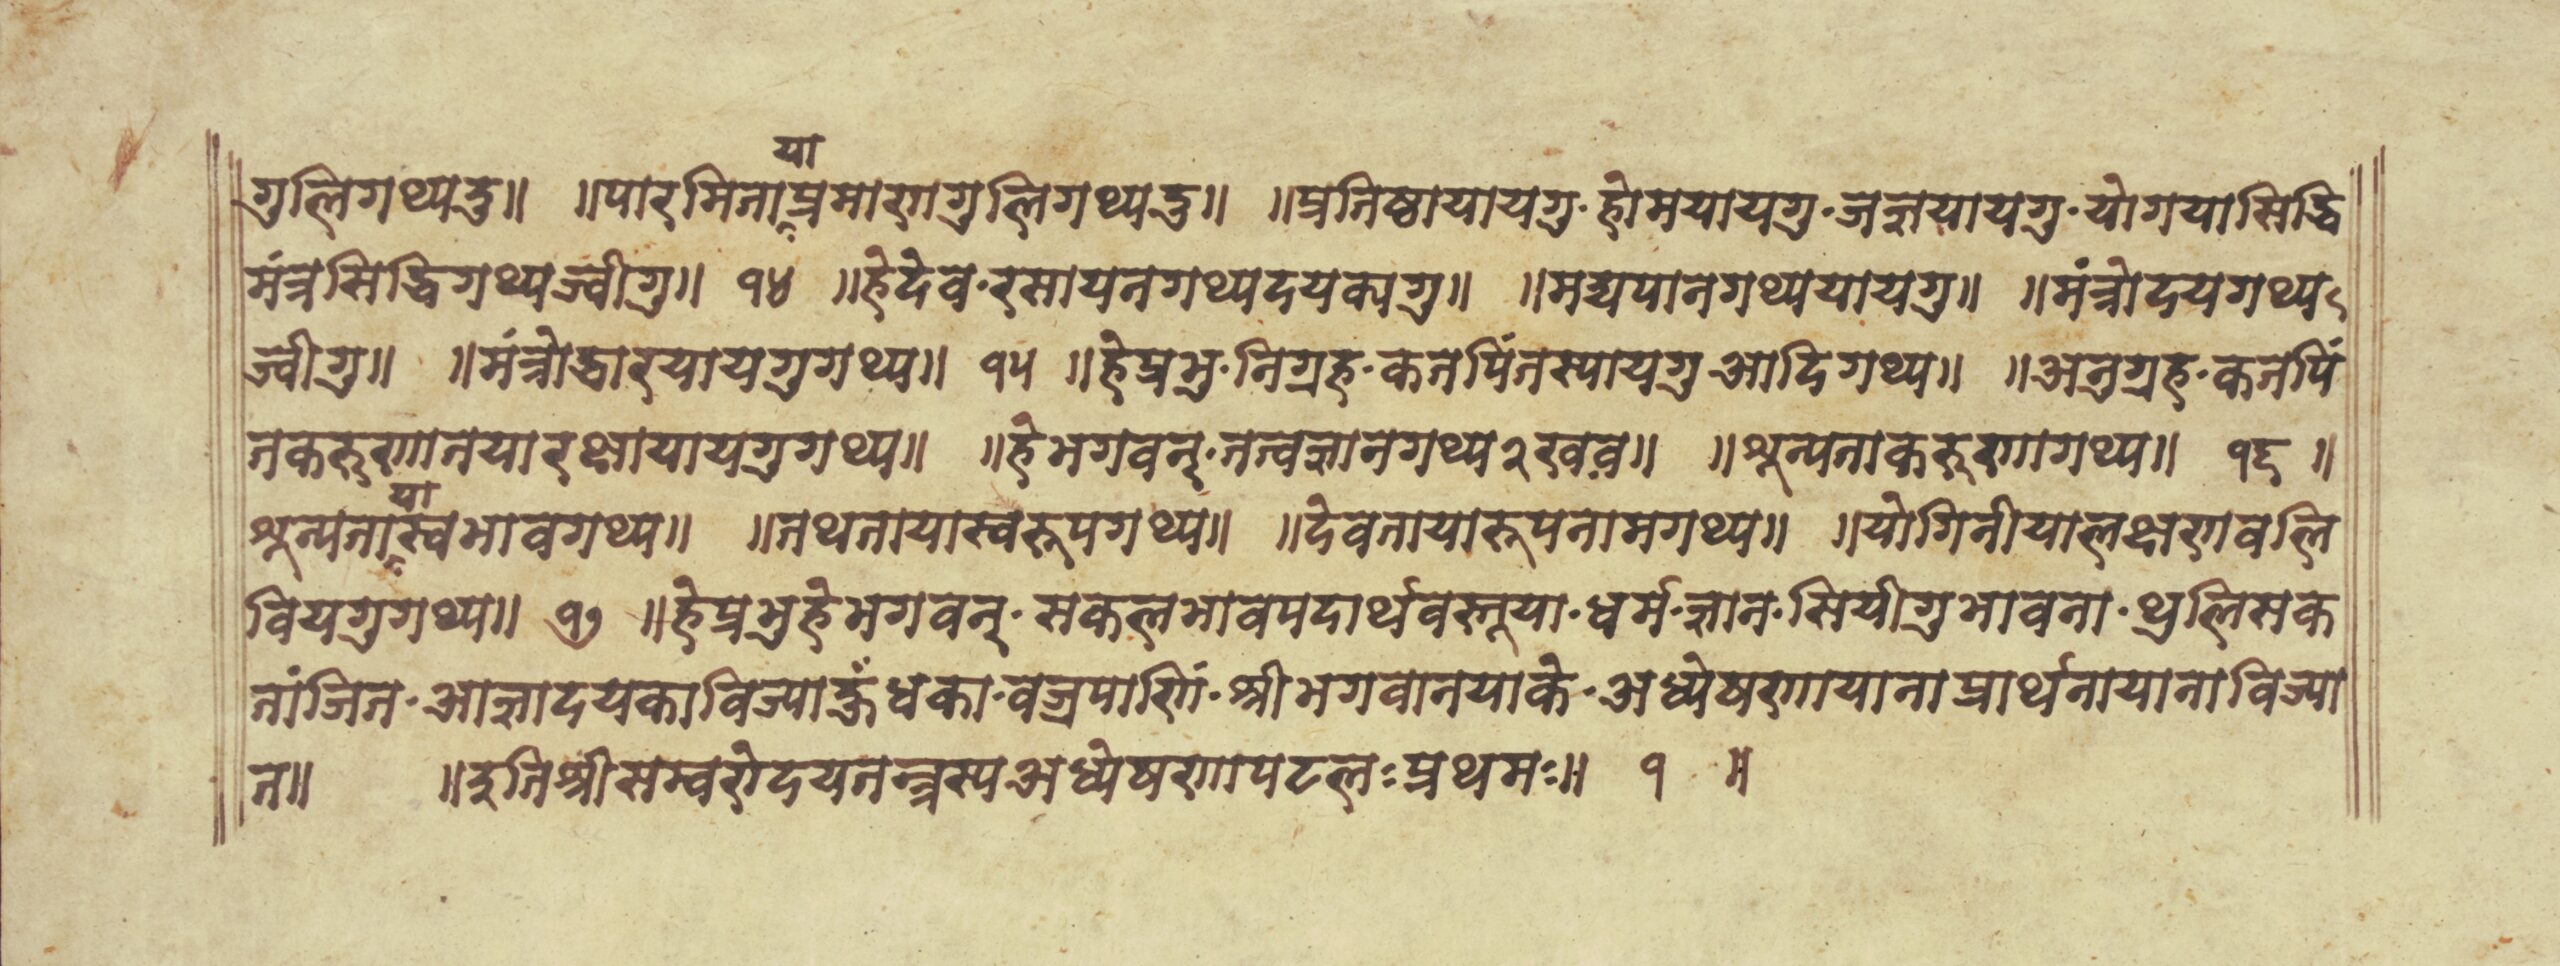 गुलिगथ्यदु॥ ॥पारमितायाप्रमाणगुलिगथ्यदु॥ ॥प्रतिष्ठायायगु·होमयायगु·जज्ञयायगु·योगयासिद्धि
मंत्रसिद्धिगथ्यज्वीगु॥ १४ ॥हेदेव·रसायनगथ्यदयक्यगु॥ ॥मद्यपानगथ्ययायगु॥ ॥मंत्रोदयगथ्य
ज्वीगु॥ ॥मंत्रोद्धारयायगुगथ्य॥ १५ ॥हेप्रभु·निग्रह·कतपिंतस्यायगुआदिगथ्य॥ ॥अनुग्रह·कतपिं
तकरुणातयारक्षायायगुगथ्य॥ ॥हेभगवन्·तत्वज्ञानगथ्य२खव॥ ॥शून्यताकरुणागथ्य॥ १६ ॥
शून्यतायास्वभावगथ्य॥ ॥तथतायास्वरूपगथ्य॥ ॥देवतायारूपनामगथ्य॥ ॥योगिनीयालक्षणवलि
वियगुगथ्य॥ १७ ॥हेप्रभुहेभगवन्·सकलभावपदार्थवस्तूया·धर्म·ज्ञान·सियीगुभावना·थुलिसक
तांजित·आज्ञादयकाविज्याहुँधका·वज्रपाणिं·श्रीभगवानयाके·अध्येषणायानाप्रार्थनायानाविज्या
त॥ ॥इतिश्रीसम्वरोदयतन्त्रस्यअध्येषणापटलःप्रथमः॥ १ ॥